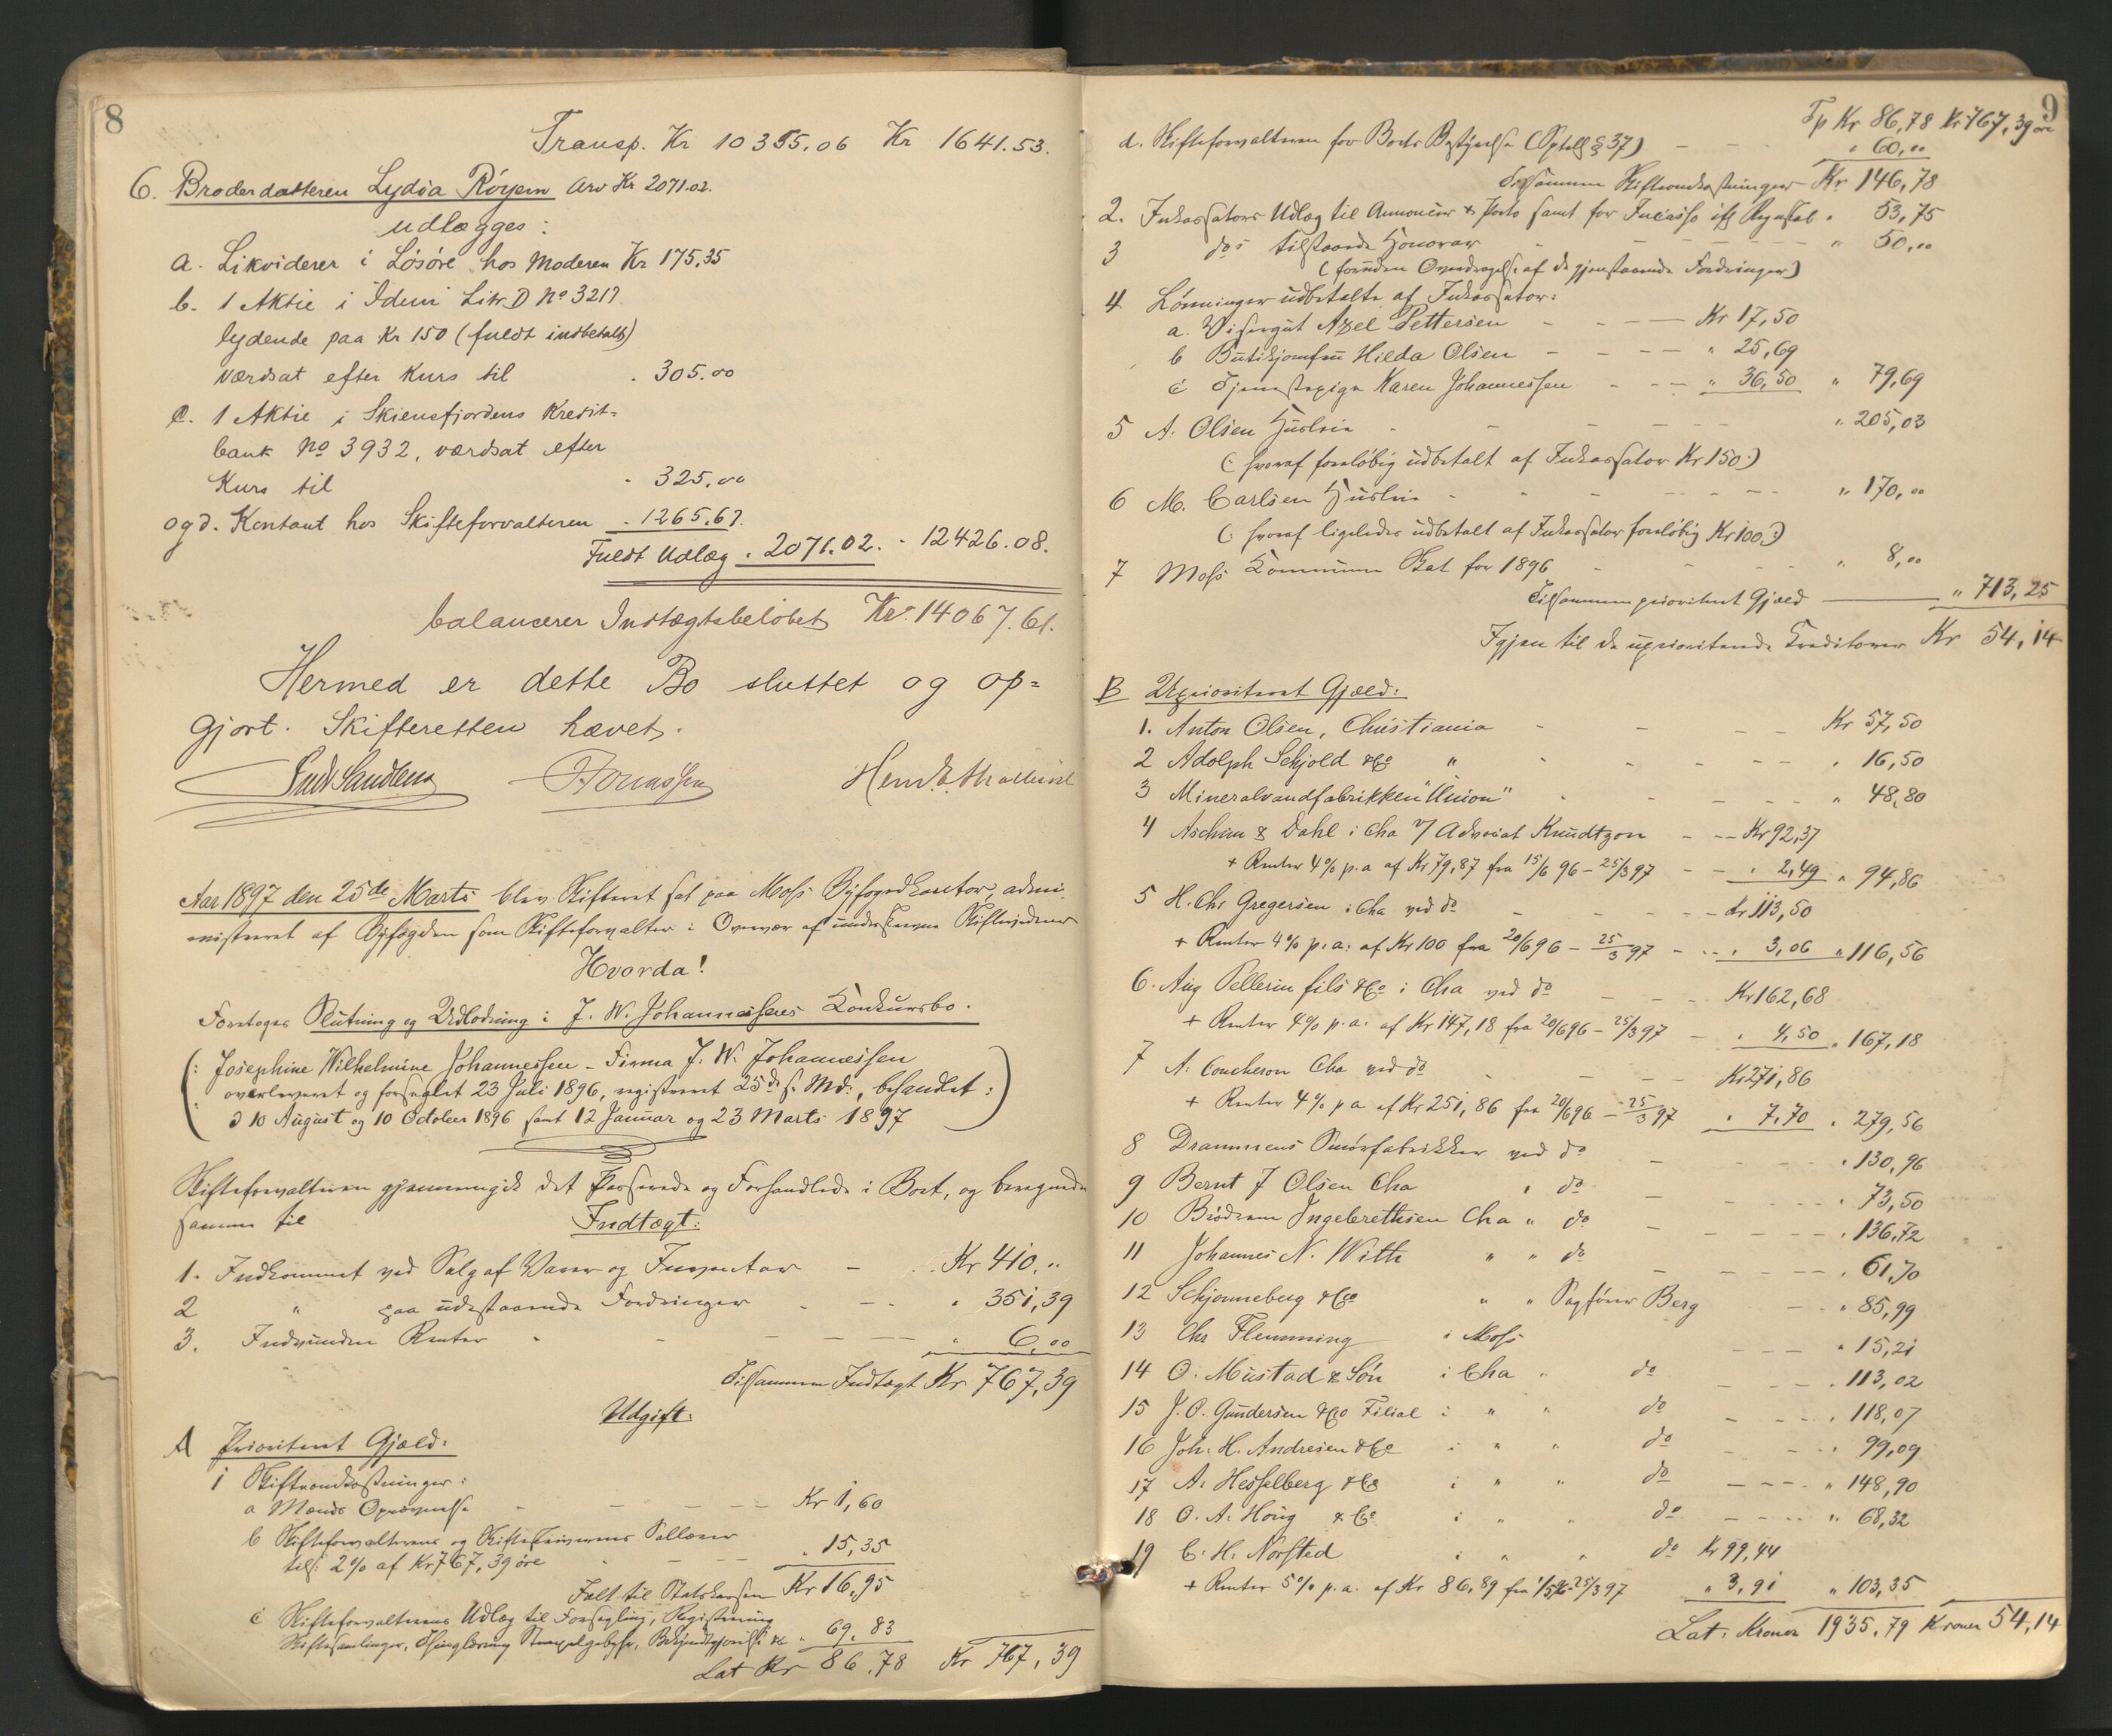 8
Transp. Kr 10355.06 Kr 1641.53.
6. Broderdatteren Lydia Röyem Arv Kr 2071.02.
udlægges:
a. Likviderer i Lösöre hos Moderen Kr 175,35
b. 1 Aktie i Idem Litr D No 3217
lydende paa Kr 150 (fuldt indbetalt)
værdsat efter Kurs til . 305.00
c. 1 Aktie i Skiensfjordens Kredit=
bank No 3932, værdsat efter
Kurs til - 325.00
og d. Kontant hos Skifteforvalteren - 1265.67.
Fuldt Udlæg . 2071.02. - 12426.08.
balancerer Indtægtsbelöbet Kr. 14067.61.
Hermed er dette Bo sluttet og op=
gjort. Skifteretten hævet.
Aar 1897 den 25de Marts blev Skifteret sat paa Moss Byfogedkontor, admi-
nistreret af Byfogden som Skifteforvalter i Overvær af underskrevne Skiftevidner
Hvorda!
Foretoges Slutning og Udlodning i J. W. Johannessens Konkursbo.
(: Josephine Wilhelmine Johannessen - Firma J. W. Johannessen
overleveret og forseglet 23 Juli 1896, registreret 25de s. Md., behandlet:
d 10 August og 10 October 1896 samt 12 Januar og 23 Marts 1897 )
Skifteforvalteren gjennemgik det Passerede og Forhandlede i Boet, og beregnede
samme til Indtægt:
1. Indkommet ved Salg af Varer og Inventar - Kr 410,"
2 " paa udestaaende Fordringer - " 351,39
3. Indvundne Renter - " 6,00
Tilsammen Indtægt Kr 767,39
Udgift:
A Prioriteret Gjæld:
1 Skifteomkostninger:
a Mænds Opnævnelse - Kr 1,60
b Skifteforvalterens og Skifteskriverens Sallærer
tils: 2% af Kr 767,39 öre " 15,35
Ialt til Statskassen Kr 16,95
c Skifteforvalterens Udlæg til Forsegling, Registrering
Skiftesamlinger, Thinglæsning Stempelgebyhr, Bekjendtgjörelse &c " 69.83
Lat Kr 86.78 Kr 767,39
9
Tp Kr 86,78 Kr 767,39 öre
d. Skifteforvalteren for Boets Bestyrelse (Sptllg § 37) - " 60,00
Tilsammen Skifteomkostninger Kr 146,78
2. Inkassators Udlæg til Annoncer & Porto samt for Incasso ifg Regnskab " 53,75
3 do tilstaaede Honorar - " 50,00
(foruden Overdragelse af de gjenstaaende Fordringer)
4 Lönninger udbetalte af Inkassator:
a. Visergut Axel Pettersen - Kr 17,50
b Butikjomfru Hilda Olsen - " 25,69
c Tjenestepige Karen Johannessen - " 36,50 " 79,69
5 A. Olsen Husleie - " 205,03
(: hvoraf foreløbig udbetalt af Inkassator Kr 150:)
6 M. Carlsen Husleie - " 170,00
(: hvoraf ligeledes udbetalt af Inkassator foreløbig Kr 100:)
7 Moss Kommune Skat for 1896 - " 8,00
Tilsammen prioriteret Gjæld — " 713,25
Igjen til de uprioriterede Kreditorer Kr 54,14
B Uprioriteret Gjæld:
1. Anton Olsen, Christiania - Kr 57,50
2 Adolph Schjold & Co " - " 16,50
3 Mineralvandfabrikken "Union" - " 48,80
4 Aschim & Dahl i Cha v/ Advocat Knudtzon - Kr 92,37
+ Renter 4% p.a af Kr 79,87 fra 15/6 96 - 25/3 97 - " 2,49 " 94,86
5 H. Chr Gregersen i Cha ved do - Kr 113,50
+ Renter 4% p.a. af Kr 100 fra 20/6 96 - 25/3 97 - " 3,06 " 116,56
6. Aug Pellerin fils & Co i Cha ved do - Kr 162,68
+ Renter 4% p.a. af Kr 147,18 fra 20/6 96 - 25/3 97 - " 4,50 " 167,18
7 A. Coucheron Cha ved do - Kr 271,86
+ Renter 4% p a af Kr 251,86 fra 20/6 96 - 25/3 97 " 7.70 " 279,56
8 Drammens Smörfabrikker ved do - " 130,96
9 Bernt J Olsen Cha " do - " 73,50
10 Brödrene Ingebrethsen Cha " do - " 136,72
11 Johannes N. With " " do - " 61,70
12 Schjonneberg & Co " " Sagförer Berg - " 85,99
13 Chr Flemming i Moss - " 15,21
14 O. Mustad & Sön i Cha " do - " 113,02
15 J. O. Gundersen & Co Filial i " " do - " 118,07
16 Joh. H. Andresen & Co i " " do - " 99,09
17 A. Hesselberg & Co i " " do - " 148,90
18 O. A. Houg & Co i " " do - " 68,32
19 C. H. Norsted i " " do Kr 99,44
+ Renter 5% p.a. af Kr 86,89 fra 1/5 96 - 25/3 97 " 3,91 " 103,35
Lat. Kroner 1935.79 Kroner 54,14